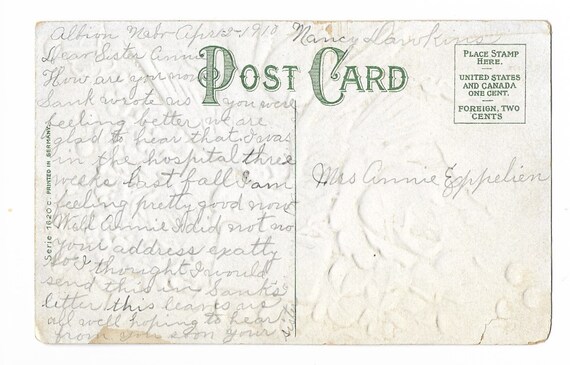 Albion Nabr Apr 12-1910
Nancy Dawkins
Dear Sister Annie
How are you now
Sank wrote us you were
feeling better we are
glad to hear that. I was
in the hospital three
weeks last fall I am
feeling pretty good now
Well Annie I did not no
your address exatly
so I thought I would
send this in Sank's
letter this leaves us
all well hoping to hear
from you soon your
sister
POST CARD
PLACE STAMP
HERE.
UNITED STATES
AND CANADA
ONE CENT.
FOREIGN, TWO
CENTS
Mrs Annie Eppelien
Serie 1620 C. PRINTED IN GERMANY.